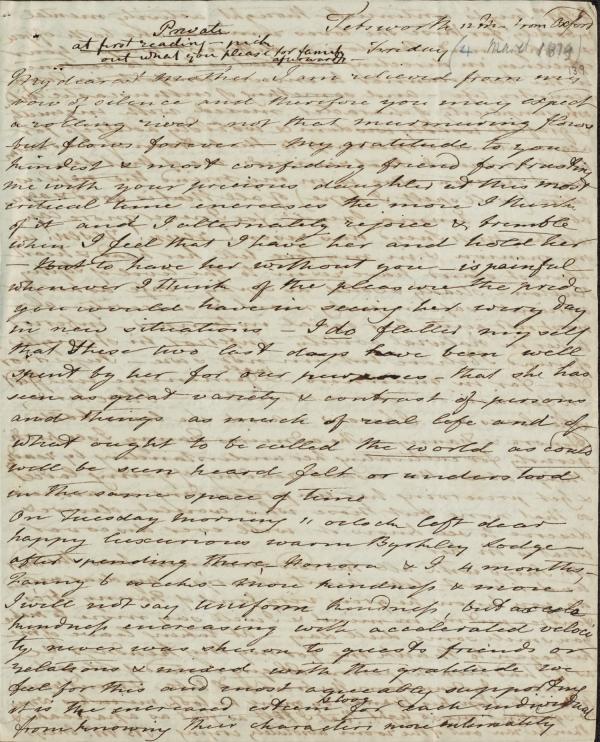 Private
at first reading – pick
out what you please for family
afterwards –
Tetsworth 12 miles from Oxford
Friday (4 March 1819)
My dearest Mother. I am relieved from my
vow of silence and therefore you may expect
a rolling river not that murmuring flows
but flows forever – My gratitude to you
kindest & most confiding friend for trusting
me with your precious daughter at this most
critical time increases the more I think
of it and I alternately rejoice & tremble
when I feel that I have her and hold her
– Not to have her without you – is painful
whenever I think of the pleasure the pride
you would have in seeing her every day
in new situations – I do flatter myself
that these two last days have been well
spent by her for our purposes that she has
seen as great variety & contrast of persons
and things as much of real life and of
what ought to be called the world as could
well be seen heard felt or understood
in the same space of time
On Tuesday morning 11 oclock left dear
happy luxurious warm Byrkley Lodge
after spending there, Honora & I 4 months,
Fanny 6 weeks – more kindness & more
I will not say uniform kindness, but as
kindness encreasing with accelerated veloci
ty never was shewn to guests friends or
relations & mixed with the gratitude we
feel for this and most agreeably supporting
it is the increased esteem & love for each individual
from knowing their characters more intimately